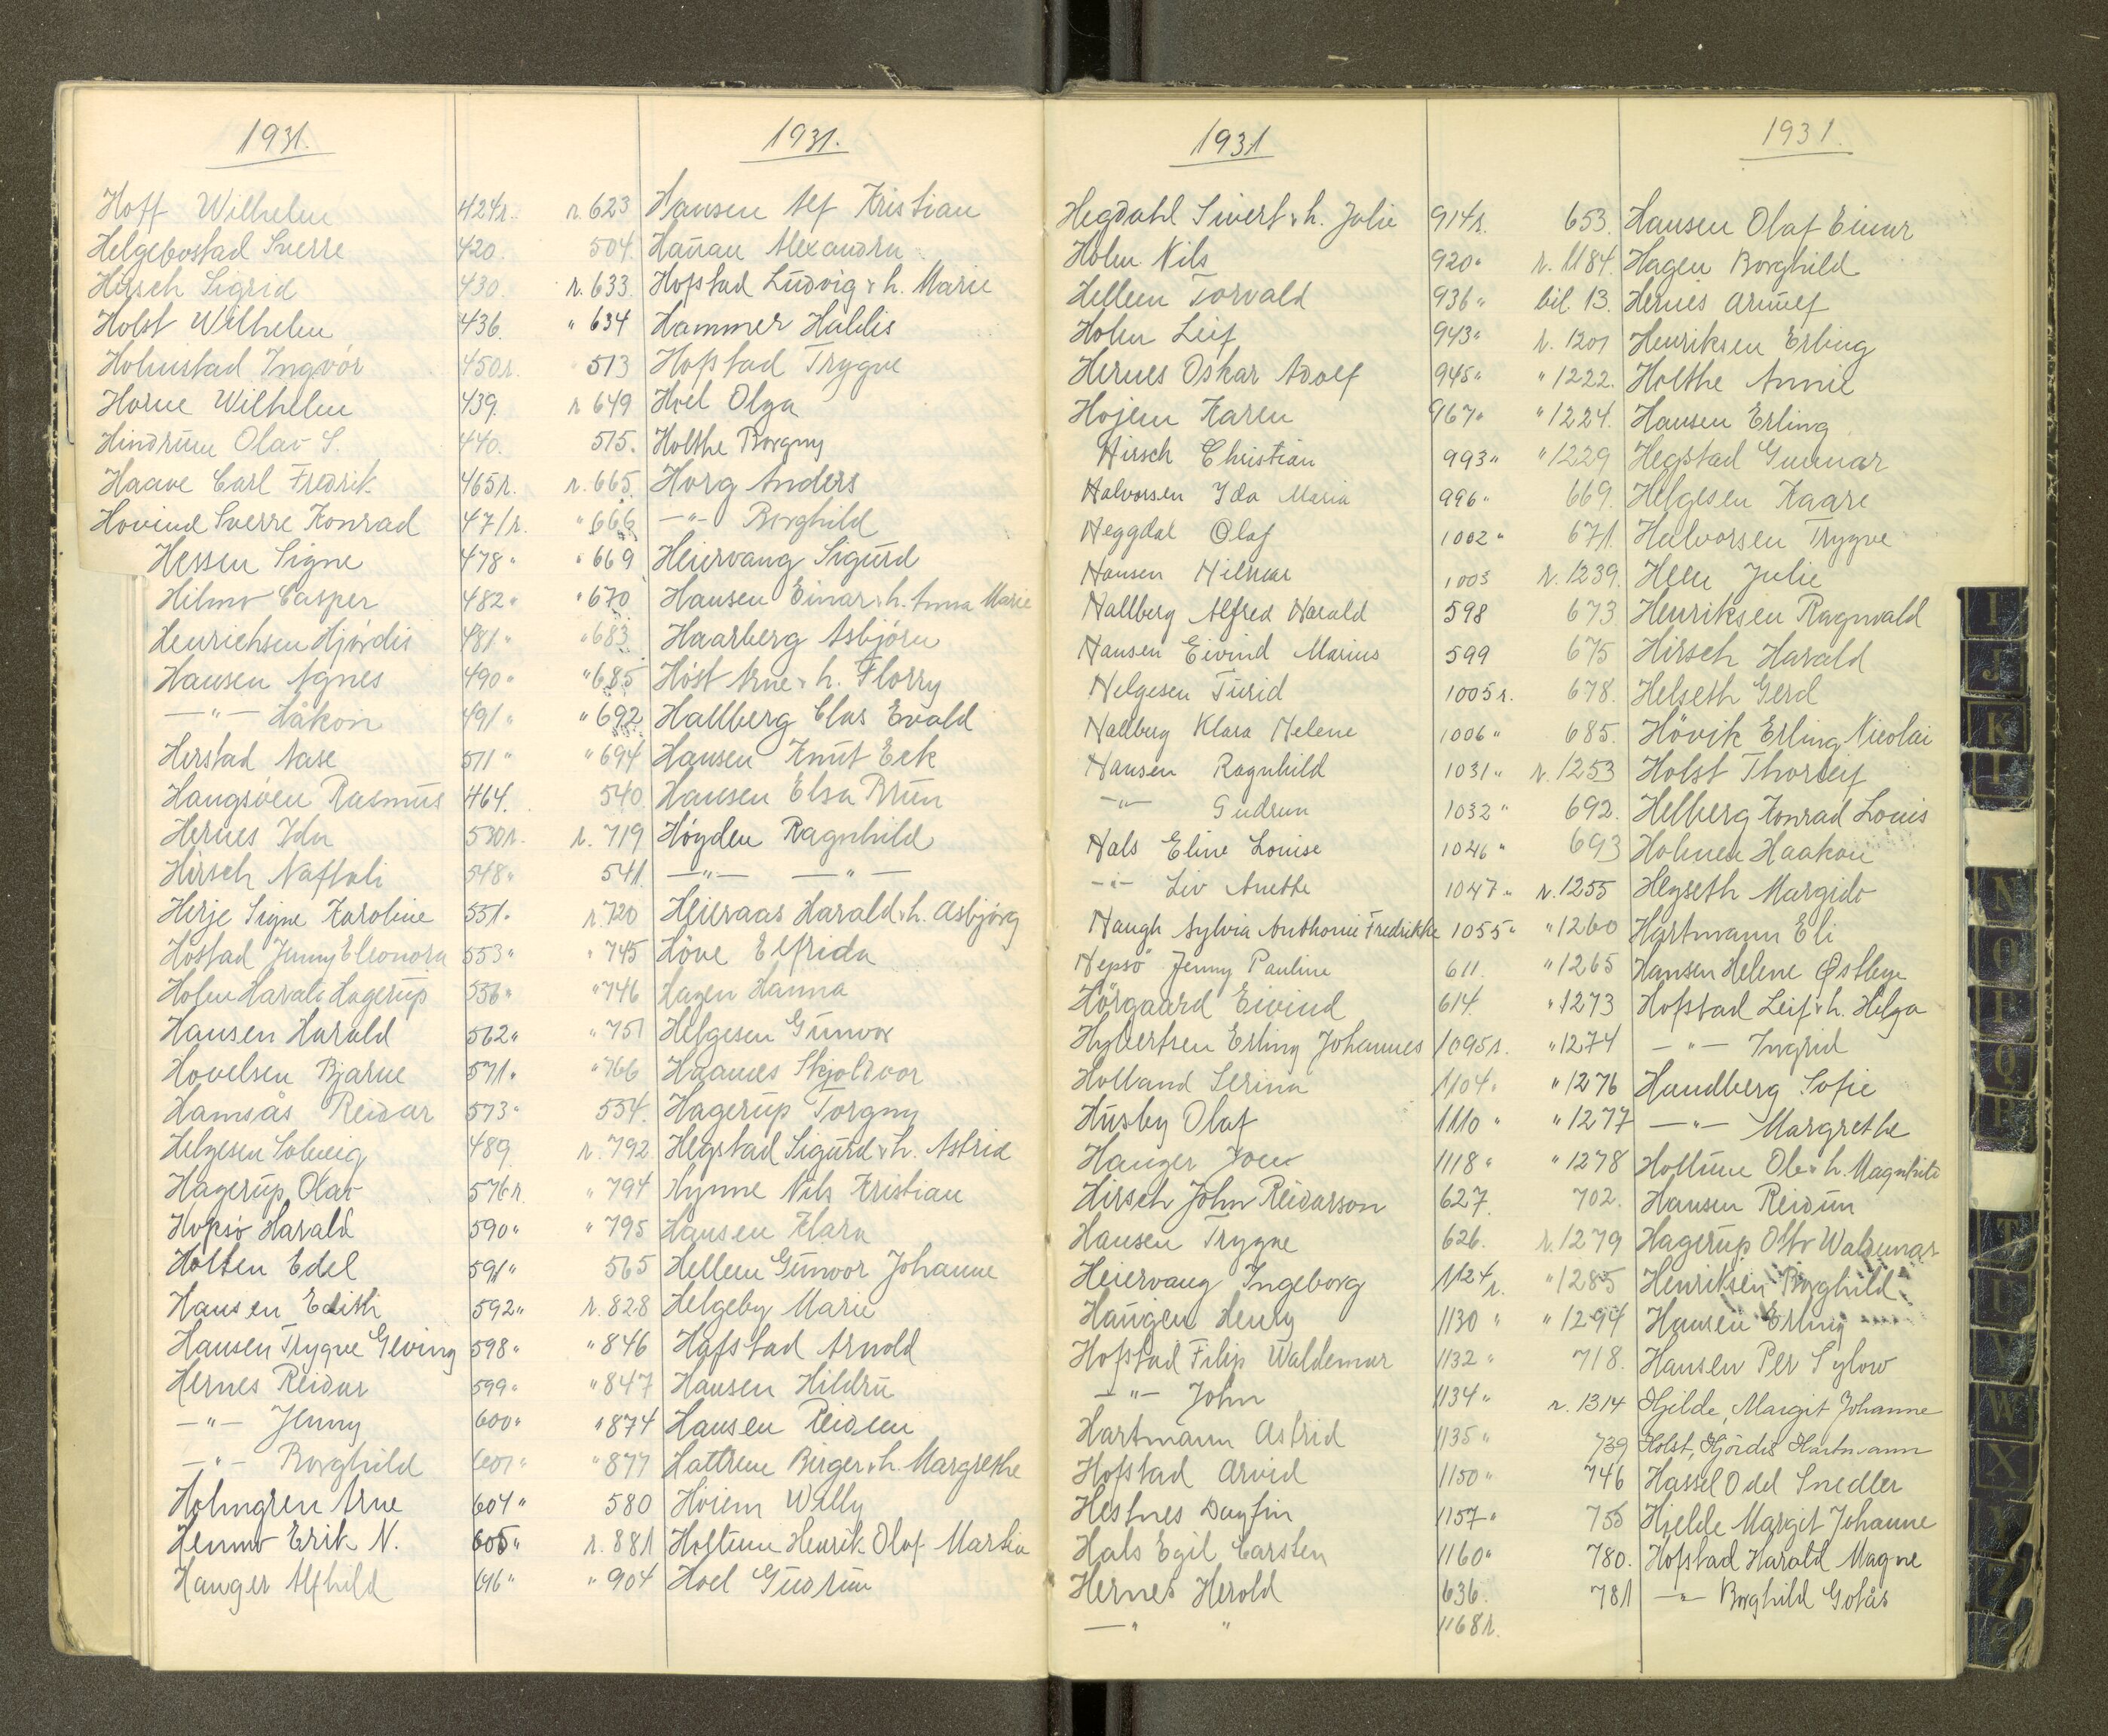 1931.
Hoff Wilhelm 424r.
Helgebostad Sverre 420.
Hirsch Sigrid 430.
Holst Wilhelm 436.
Holmstad Ingvor 450r.
Horne Wilhelm 439.
Hindrum Olav S. 440.
Haave Carl Fredrik 465r.
Hovind Sverre Konrad 471r.
Hessen Signe 478"
Hilmo Casper 482"
Henrichsen Hjördis 481"
Hansen Agnes 490"
—"— Håkon 491"
Herstad Aase 511"
Haugsöen Rasmus 464.
Hernes Ida 530r.
Hirsch Naftali 548"
Herje Signe Karoline 551"
Hostad Jenny Eleonora 553"
Holm Harald Hagerup 556"
Hansen Harald 562"
Hovelsen Bjarne 571"
Hamsås Reidar 573"
Helgesen Solveig 489.
Hagerup Olav 576r.
Hopsö Harald 590"
Holten Edel 591"
Hansen Edith 592"
Hansen Trygve Geving 598"
Hernes Reidar 599"
—"— Jenny 600"
—"— Borghild 601"
Holmgren Arne 604"
Hemmo Erik N. 605"
Hanger Alfhild 616"
1931.
r. 623 Hansen Alf Kristian
504. Hanan Alexandra
r. 633. Hofstad Ludvig & h. Marie
" 634 Hammer Haldis
513 Hofstad Trygve
r 649 Hoel Olga
515. Holthe Borgny
r. 665. Horg Anders
" 666 —"— Borghild
" 669 Heiervang Sigurd
" 670 Hansen Einar & h. Anna Marie
" 683 Haarberg Asbjörn
" 685 Höst Arne & h. Florry
" 692 Hallberg Clas Evald
" 694 Hansen Knut Eek
540. Hansen Elsa Brun
r. 719 Höyden Ragnhild
541. —"— —"—
r. 720 Heieraas Harald & h. Asbjörg
" 745 Höve Elfrida
" 746 Hagen Hanna
" 751 Helgesen Gunvor
" 766 Haanes Skjoldvor
554. Hagerup Torgny
r. 792 Hegstad Sigurd & h. Astrid
" 794 Hynne Nils Kristian
" 795 Hansen Klara
565 Hellem Gunvor Johanne
r. 828 Helgeby Marie
" 846 Hafstad Arnold
" 847 Hansen Hildru
" 874 Hansen Reidun
" 877 Hattrem Birger & h. Margrethe
580 Höiem Willy
r. 881 Holtum Henrik Olaf Martin
" 904 Hoel Gudrun
1931
Hegdahl Sivert & h. Julie 914r.
Holm Nils 920"
Hellem Torvald 936"
Holm Leif 943"
Hernes Oskar Adolf 945"
Hojem Karen 967"
Hirsch Christian 993"
Halvorsen Ida Maria 996"
Heggdal Olaf 1002"
Hansen Hilmar 1003
Hallberg Alfred Harald 598
Hansen Eivind Marius 599
Helgesen Turid 1005r.
Hallberg Klara Helene 1006"
Hansen Ragnhild 1031"
—"— Gudrun 1032"
Hals Eline Louise 1046"
—"— Liv Anette 1047"
Haugh Sylvia Anthonie Fredrikke 1055"
Hepsö Jenny Pauline 611.
Hörgaard Eivind 614.
Hylbertsen Erling Johannes 1095r.
Holland Serina 1104"
Husby Olaf 1110"
Hanger Joen 1118"
Hirsch John Reidarson 627.
Hansen Trygve 626.
Heiervang Ingeborg 1124r.
Haugen Henry 1130"
Hofstad Filip Waldemar 1132"
—"— John 1134"
Hartmann Astrid 1135"
Hofstad Arvid 1150"
Hestnes Dagfin 1157"
Hals Egil Carsten 1160"
Hernes Herold 636.
—" " 1168r.
1931.
653. Hansen Olaf Einar
r. 1184. Hagen Borghild
bil. 13. Hernes Arnulf
r. 1201 Henriksen Erling
" 1222. Holthe Annie
" 1224. Hansen Erling
" 1229 Hegstad Gunnar
669. Helgesen Kaare
671. Halvorsen Trygve
r. 1239. Hem Julie
673 Henriksen Ragnvald
675 Hirsch Harald
678. Helseth Gerd
685. Hövik Erling Nicolai
r. 1253 Holst Thorleif
692. Helberg Konrad Louis
693 Holmen Haakon
r. 1255 Hegseth Margido
" 1260 Hartmann Eli
" 1265 Hansen Helene Østbye
" 1273 Hofstad Leif & h. Helga
" 1274 —"— Ingrid
" 1276 Haudberg Sofie
" 1277 —"— Margrethe
" 1278 Holtum Ole & h. Magnhild
702. Hansen Reidun
r. 1279 Hagerup Otto Waldemar
" 1285 Henriksen Borghild
" 1294 Hansen Erling
718. Hansen Per Sylow
r. 1314 Hjelde, Margit Johanne
739 Holst, Hjördis Hartmann
746 Hassel Odd Snedler
755 Hjelde Margit Johanne
780. Hofstad Harald Magne
781 —"— Borghild Gotås
I
J
K
L
N
O
P
Q
R
T
U
V
W
X
Y
Z